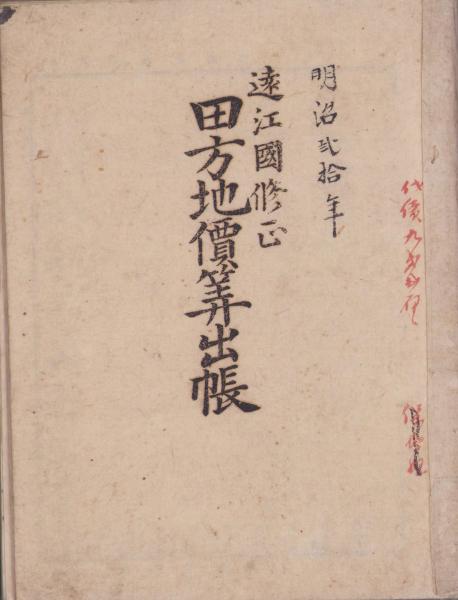 明治弐拾年
遠江國修正
田方地價筭出帳
代價九